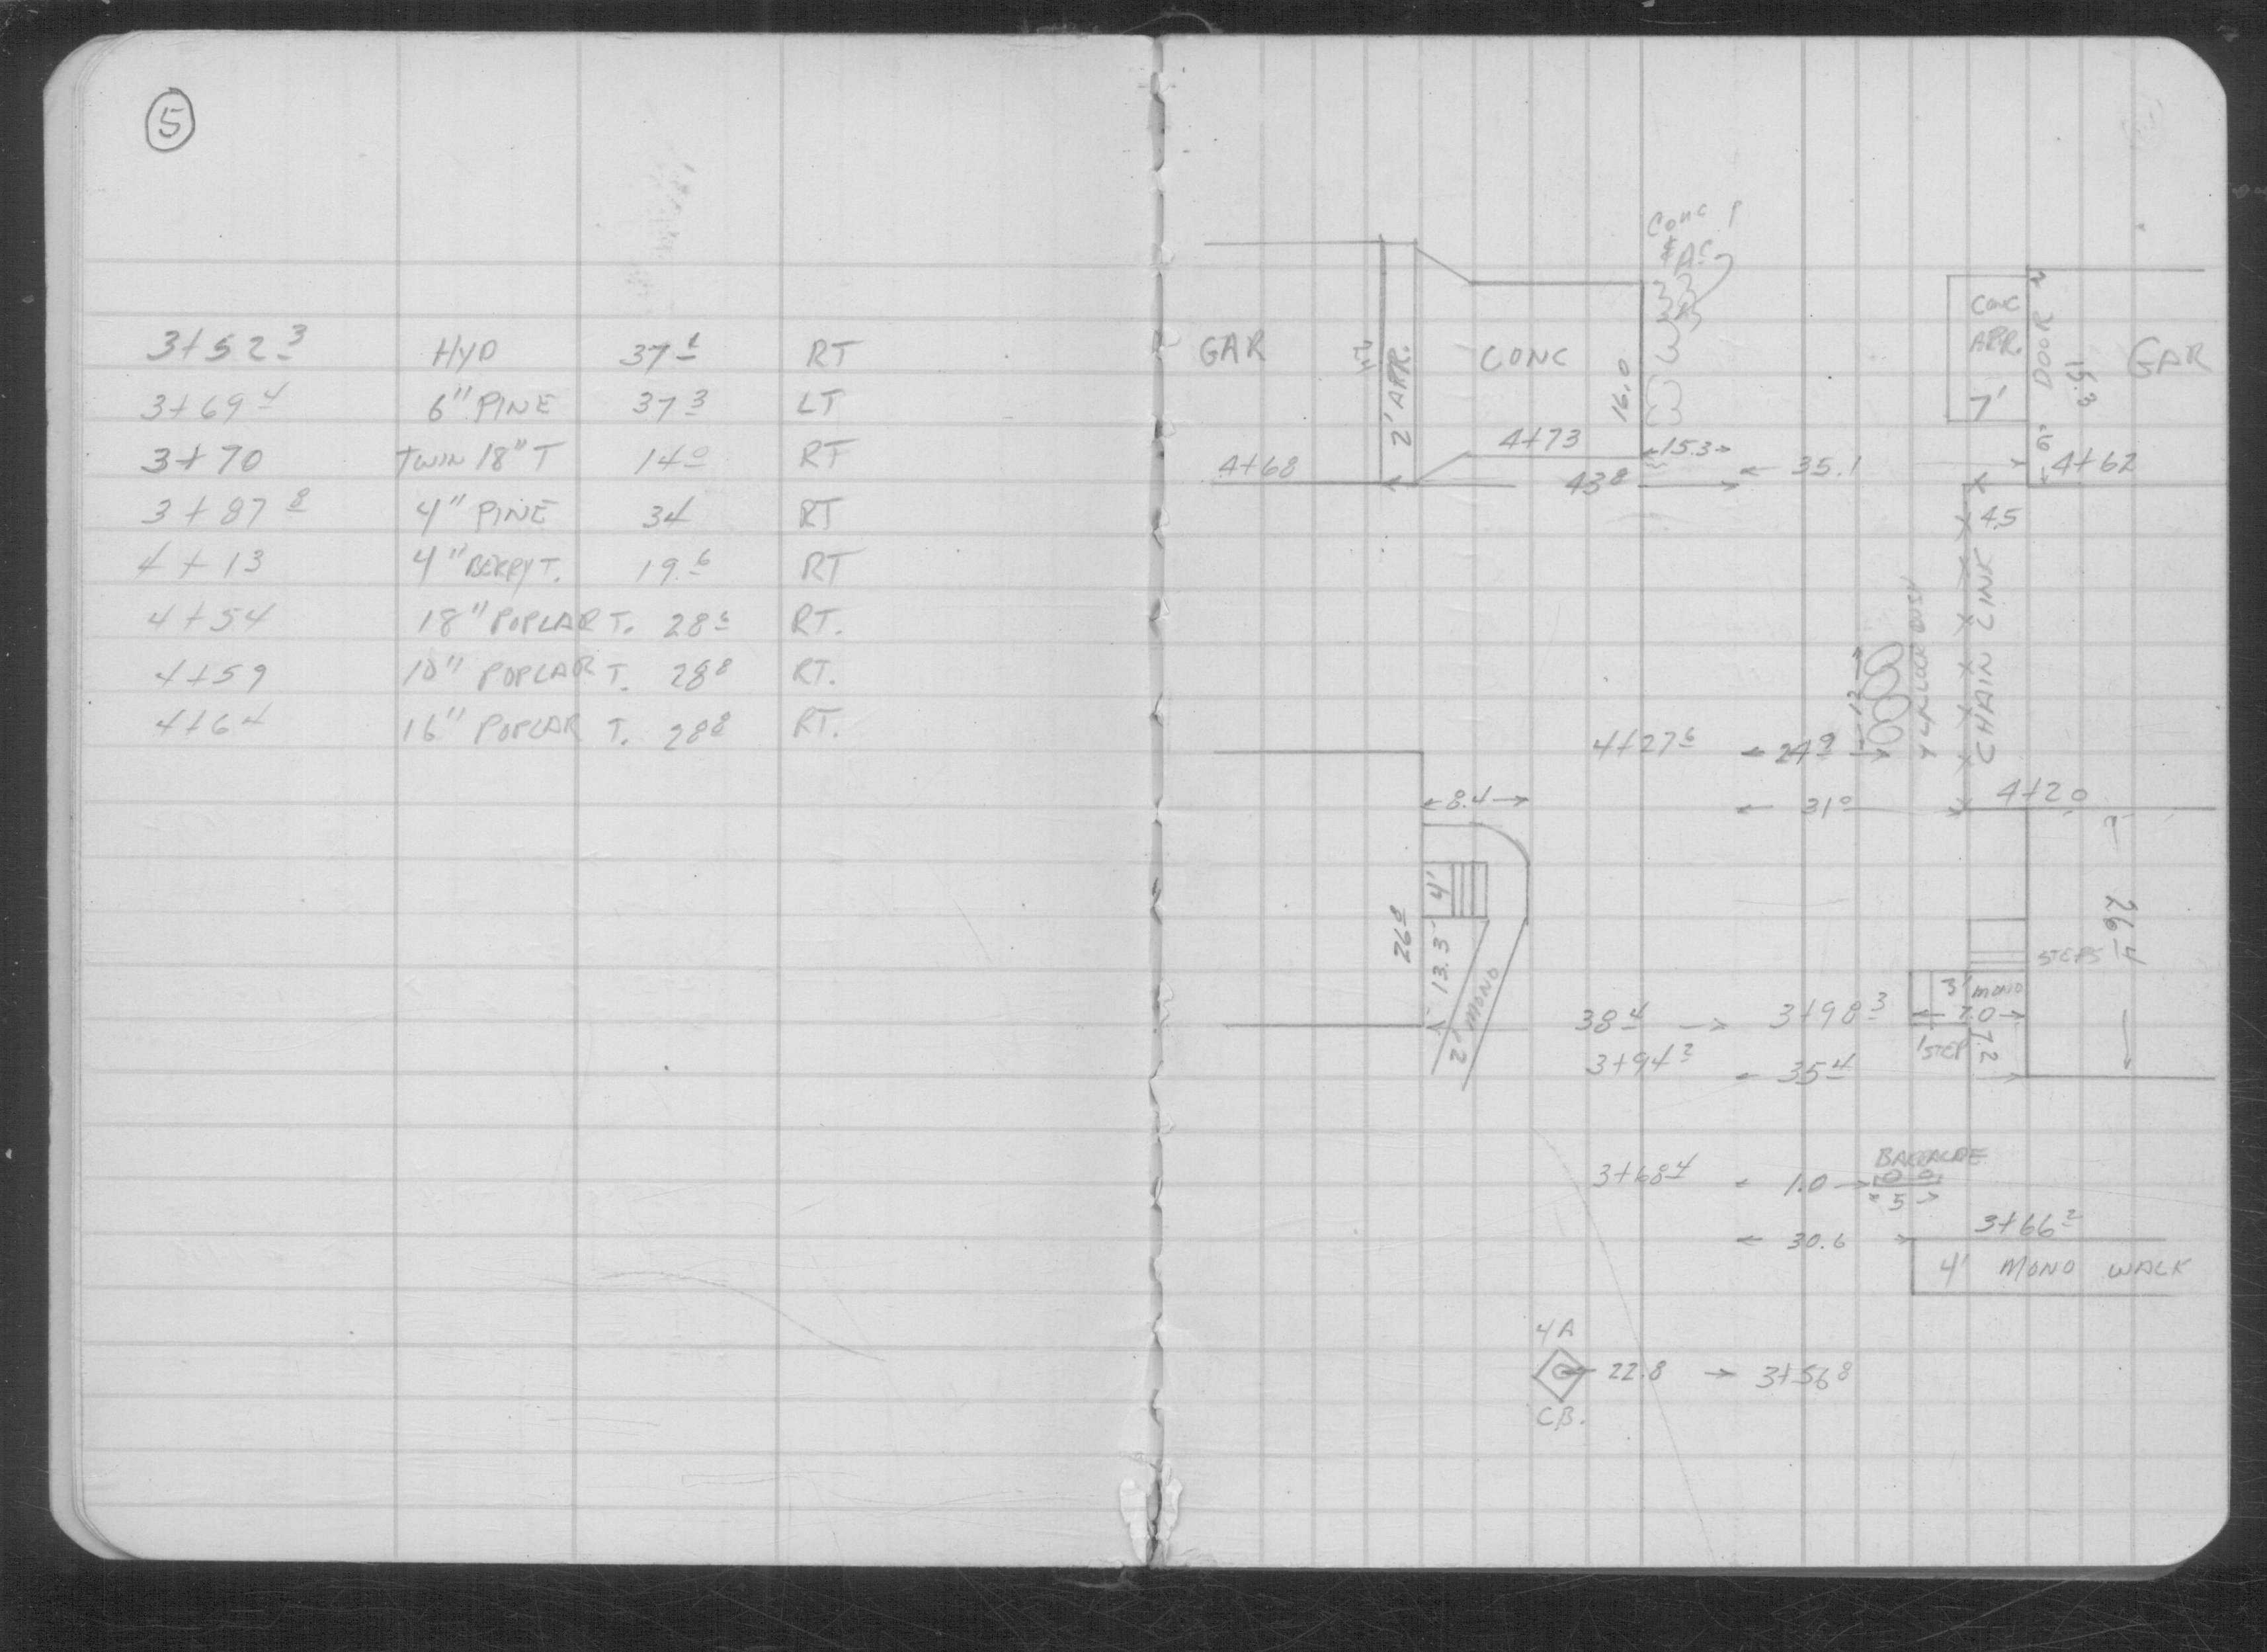 5
3+52 3 HYD 37 1 RT
3+69 4 6" PINE 37 3 LT
3+70 TWIN 18" T 14 0 RT
3+87 8 4" PINE 34 RT
4+13 4" BERRY T. 19.6 RT
4+54 18" POPLAR T. 28 RT.
4+59 10" POPLAR T. 28 8 RT.
4+64 16" POPLAR T. 28 8 RT.
CONC
GAR
2' APR.
CONC
16.0
CONC
APR.
7'
DOOR
15.3
GAR
4+68
4+73
15.3
43 8
35.1
4+62
4.5
CHAIN LINK
12
4+27 6
24 9
31 0
4+20
8.4
4'
26 8
13.3
2' MONO
26 4
STEPS
3' MONO
38 4
3+98 3
7.0
1 STEP
7.2
3+94 2
35 4
3+68 4
1.0
5
3+66 2
30.6
4' MONO WALK
4A
22.8
3+56 8
C.B.